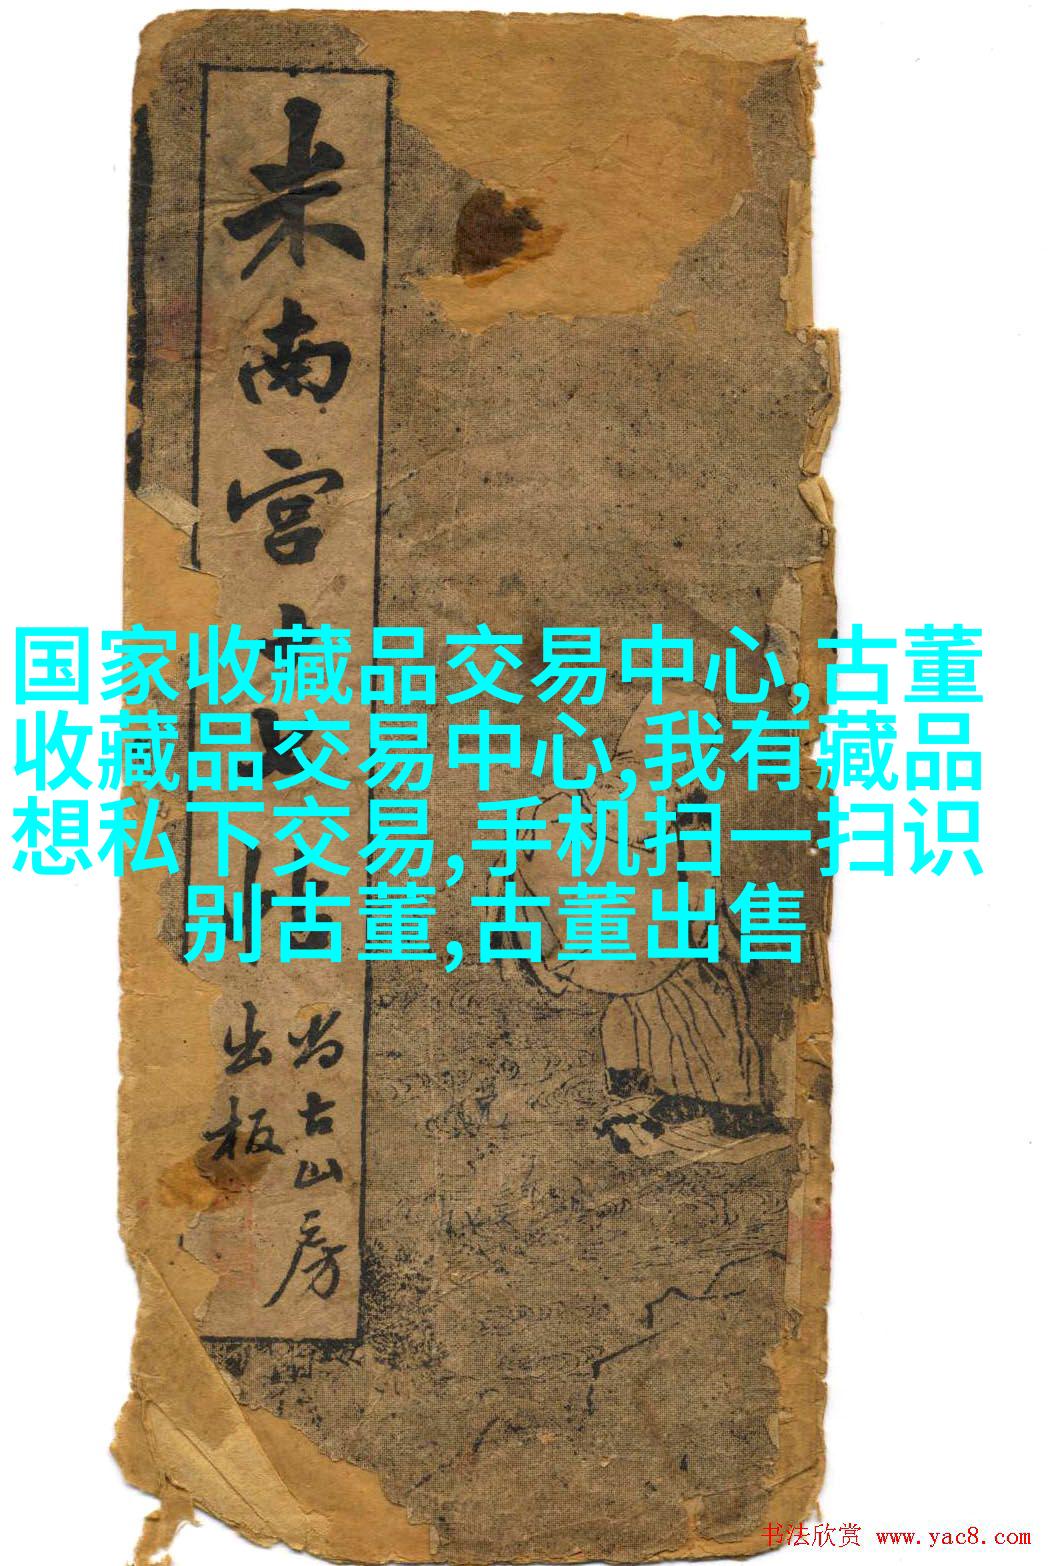 国家收藏品交易中心,古董
收藏品交易中心,我有藏品
想私下交易,手机扫一扫识
别古董,古董出售
米南宫
尚古山房
出板
书法欣赏 www.yac8.com